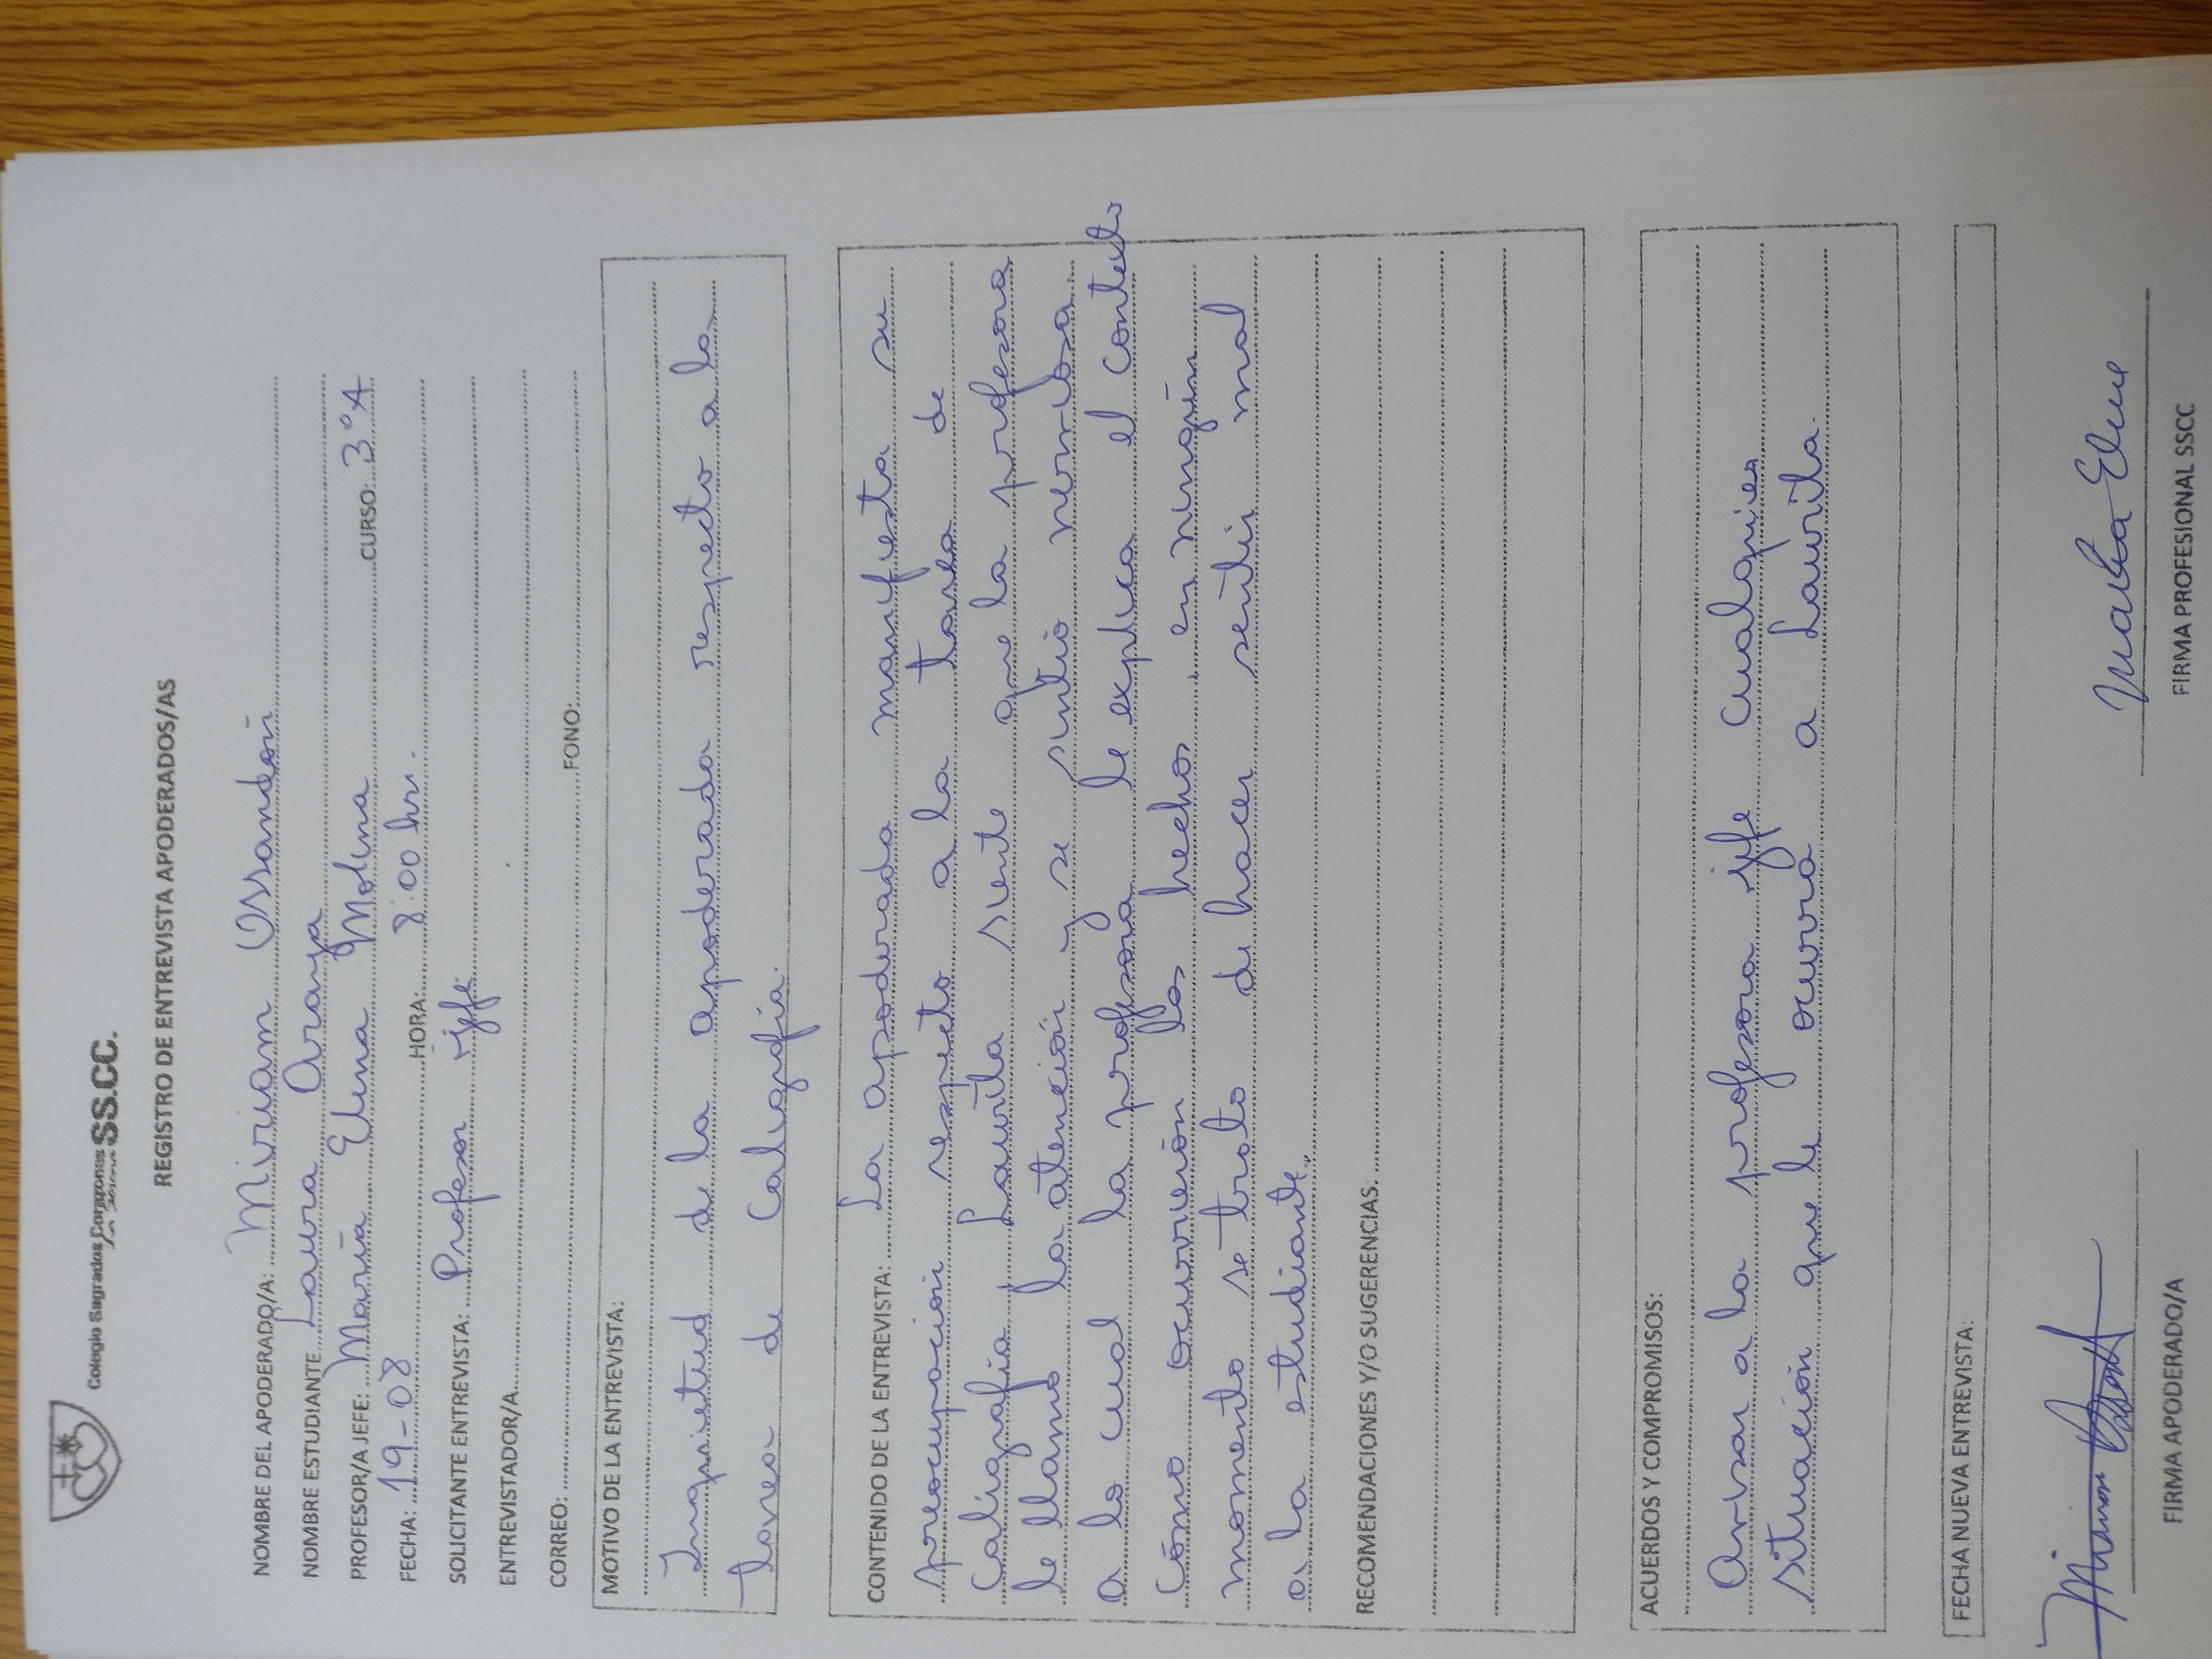 Colegio Sagrados Corazones SS.CC.
REGISTRO DE ENTREVISTA APODERADOS/AS
NOMBRE DEL APODERADO/A: Miriam Ossandón
NOMBRE ESTUDIANTE Laura Araya
PROFESOR/A JEFE: María Elena Molina CURSO: 3°A
FECHA: 19-08 HORA: 8:00 hrs.
SOLICITANTE ENTREVISTA: Profesor jefe
ENTREVISTADOR/A
CORREO: FONO:
MOTIVO DE LA ENTREVISTA:
Inquietud de la apoderada respecto a la
tarea de Caligrafía.
CONTENIDO DE LA ENTREVISTA: La apoderada manifiesta su
preocupación respecto a la tarea de
Caligrafía, Laurita siente que la profesora
le llamó la atención y se sintió nerviosa
a lo cual la profesora le explica el contexto
cómo ocurrieron los hechos, en ningún
momento se trato de hacer sentir mal
a la estudiante.
RECOMENDACIONES Y/O SUGERENCIAS:
ACUERDOS Y COMPROMISOS:
Avisar a la profesora jefe cualquier
situación que le ocurra a Laurita.
FECHA NUEVA ENTREVISTA:
FIRMA APODERADO/A FIRMA PROFESIONAL SSCC